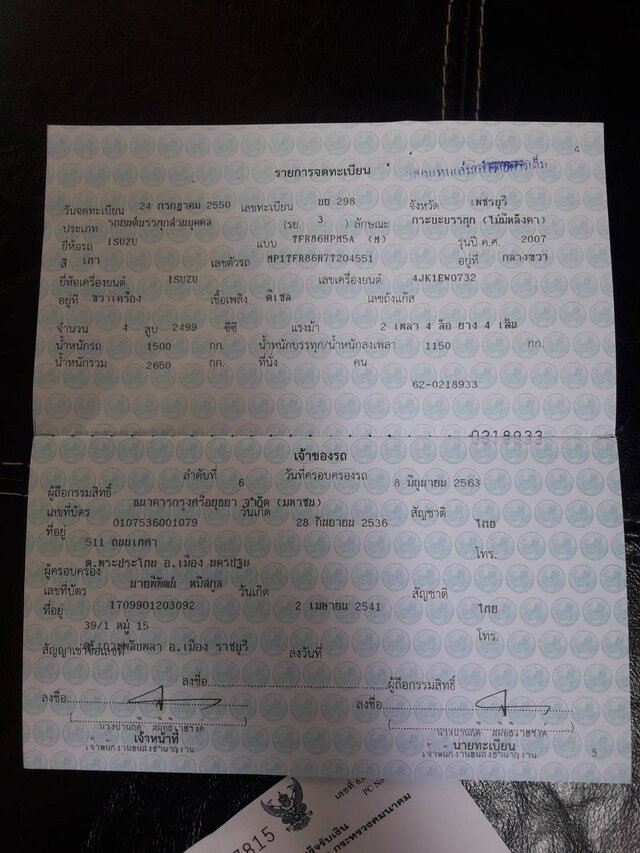 4
รายการจดทะเบียน
วันจดทะเบียน 24 กรกฎาคม 2550 เลขทะเบียน บย 298 จังหวัด เพชรบุรี
ประเภท รถยนต์บรรทุกส่วนบุคคล (รย. 3 ) ลักษณะ กระบะบรรทุก (ไม่มีหลังคา)
ยี่ห้อรถ ISUZU แบบ TFR86HPM5A (M) รุ่นปี ค.ศ. 2007
สี เทา เลขตัวรถ MP1TFR86H7T204551 อยู่ที่ กลางขวา
ยี่ห้อเครื่องยนต์ ISUZU เลขเครื่องยนต์ 4JK1EW0732
อยู่ที่ ขวาเครื่อง เชื้อเพลิง ดีเซล เลขถังแก๊ส
จำนวน 4 สูบ 2499 ซีซี แรงม้า 2 เพลา 4 ล้อ ยาง 4 เส้น
น้ำหนักรถ 1500 กก. น้ำหนักบรรทุก/น้ำหนักลงเพลา 1150 กก.
น้ำหนักรวม 2650 กก. ที่นั่ง คน
62-0218933
0218933
เจ้าของรถ
ลำดับที่ 6 วันที่ครอบครองรถ 8 มิถุนายน 2563
ผู้ถือกรรมสิทธิ์ ธนาคารกรุงศรีอยุธยา จำกัด (มหาชน)
เลขที่บัตร 0107536001079 วันเกิด 28 กันยายน 2536 สัญชาติ ไทย
ที่อยู่ 511 ถนนเทศา โทร.
ต.พระประโทน อ.เมือง นครปฐม
ผู้ครอบครอง นายพิพัฒน์ หมีสกุล
เลขที่บัตร 1709901203092 วันเกิด 2 เมษายน 2541 สัญชาติ ไทย
ที่อยู่ 39/1 หมู่ 15 โทร.
สัญญาเช่าซื้อเลขที่ อ.เมือง ราชบุรี ลงวันที่
ลงชื่อ ผู้ถือกรรมสิทธิ์
ลงชื่อ ลงชื่อ
เจ้าหน้าที่ นายทะเบียน
เจ้าพนักงานขนส่งชำนาญงาน เจ้าพนักงานขนส่งชำนาญงาน
5
PC No.
7815
กระทรวงคมนาคม